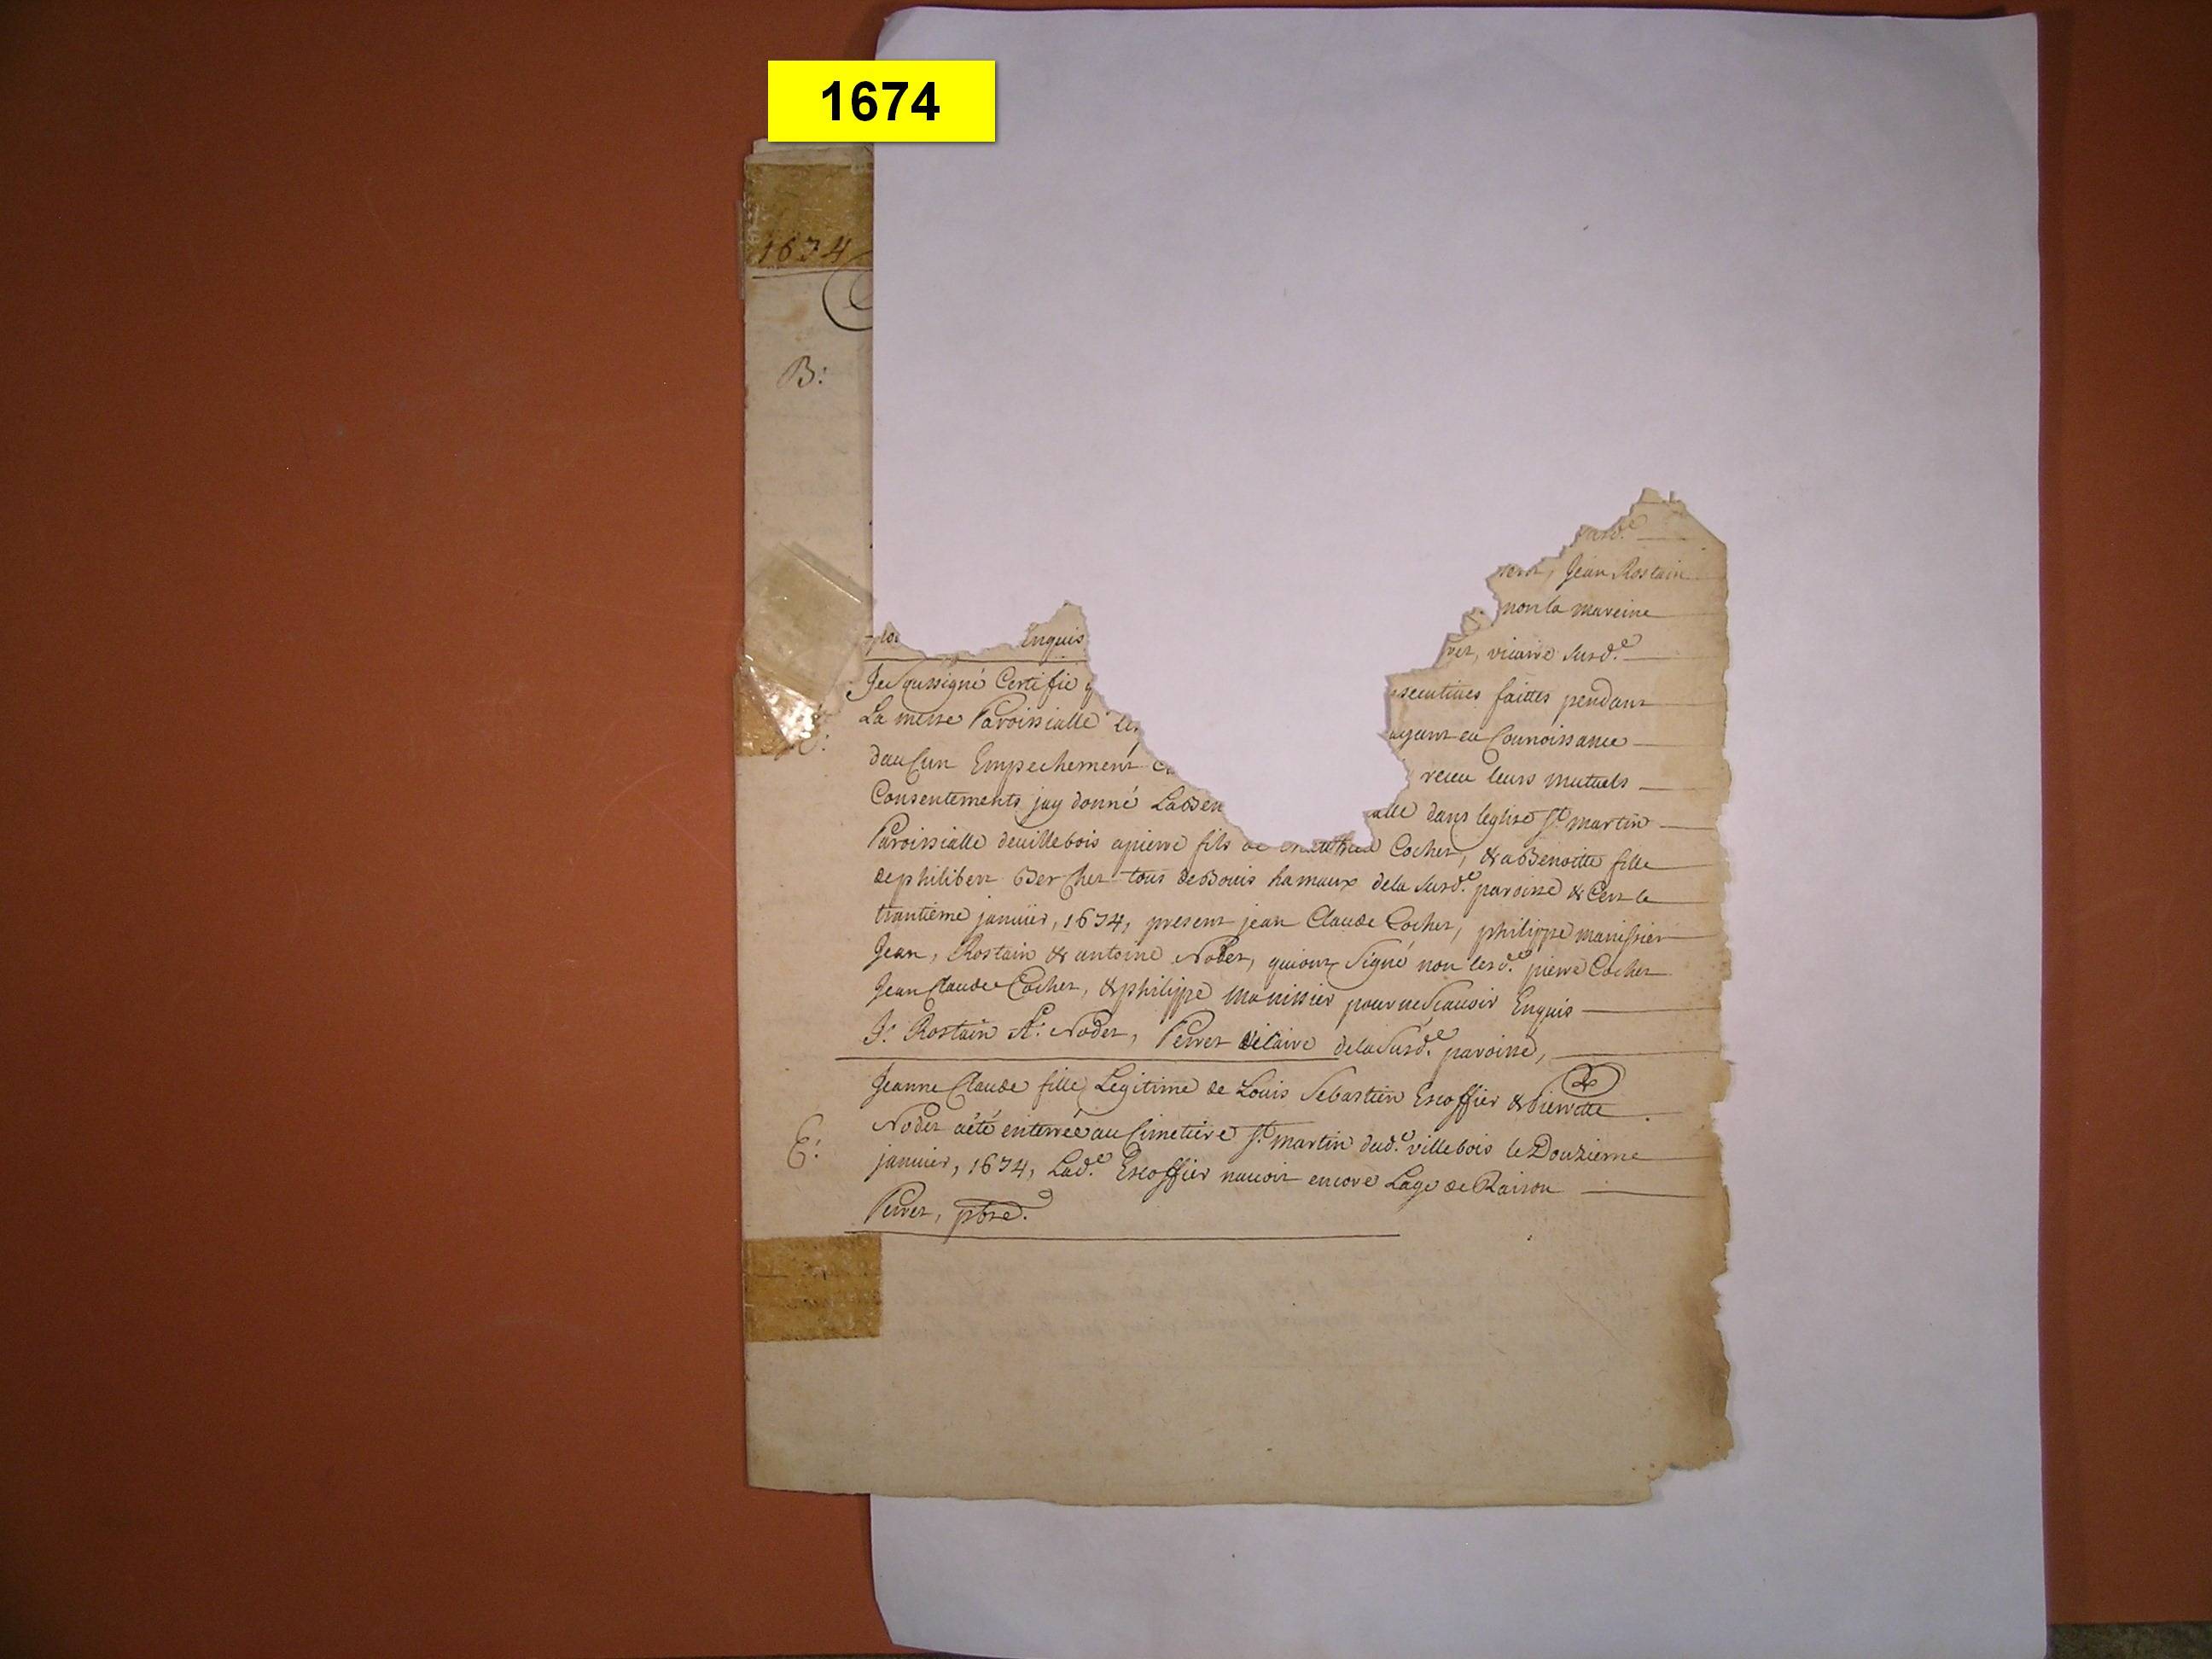 1674
1674
B:
susd.e
Jean Rostain
non la mareine
vicaire susd.e
Enquis
Je Soussigné Certifie
secutives faittes pendant
La messe Paroissialle les
ayant eu Connoissance
daucun Empechement
receu leurs mutuels
Consentements jay donné La Ben
alle dans leglise St martin
Paroissialle deuillebois a pierre fils de Cochet, & a Benoitte fille
de philibert Berchet tous de Bouis hamaux dela susd.e paroisse & Cert le
trantième januier, 1674, present jean Claude Cochet, philippe manissier
Jean, Rostain & antoine Nodet, quiont Signé non lesd.e pierre Cochet
Jean Claude Cochet, & philippe manissier pour ne Scauoir Enquis
J: Rostain A: Nodet, Perret vicaire dela Susd.e paroisse,
Jeanne Claude fille Legitime de Louis Sebastien Escoffier & pierrette
E:
Nodet aété enterrée au Cimetière St martin dud.e villebois le Douzieme
januier, 1674, Lad.e Escoffier nauoit encore Lage de Raison
Perret, pbre.